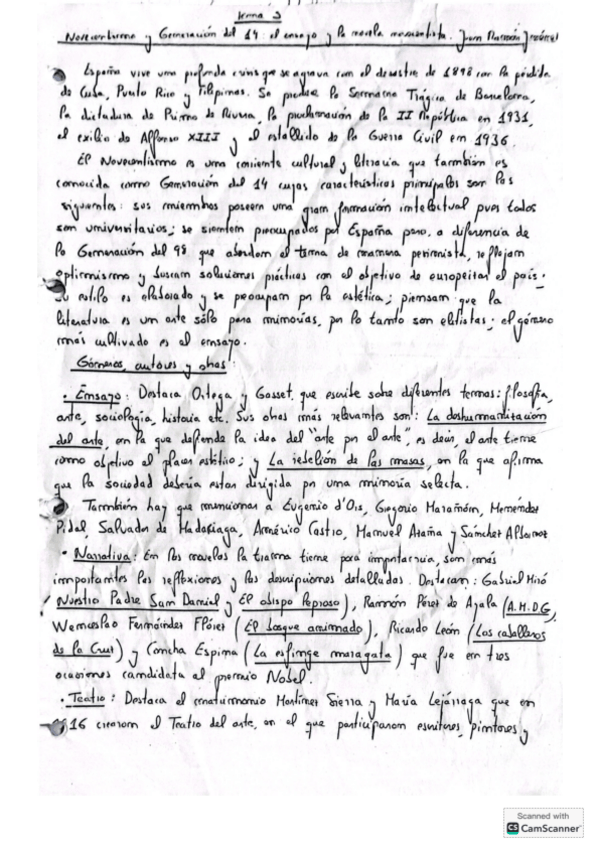 Tema 3
Novecentismo y Generación del 14: el ensayo y la novela novecentista. Juan Ramón Jiménez
España vive una profunda crisis que se agrava con el desastre de 1898 con la pérdida
de Cuba, Puerto Rico y Filipinas. Se produce la Semana Trágica de Barcelona,
la dictadura de Primo de Rivera, la proclamación de la II República en 1931,
el exilio de Alfonso XIII y el estallido de la Guerra Civil en 1936.
El Novecentismo es una corriente cultural y literaria que también es
conocida como Generación del 14 cuyas características principales son las
siguientes: sus miembros poseen una gran formación intelectual pues todos
son universitarios; se sienten preocupados por España pero, a diferencia de
la Generación del 98 que abordan el tema de manera pesimista, reflejan
optimismo y buscan soluciones prácticas con el objetivo de europeizar el país.
Su estilo es elaborado y se preocupan por la estética; piensan que la
literatura es un arte sólo para minorías, por lo tanto son elitistas; el género
más cultivado es el ensayo.
Géneros, autores y obras:
· Ensayo: Destaca Ortega y Gasset, que escribe sobre diferentes temas: filosofía,
arte, sociología, historia etc. Sus obras más relevantes son: La deshumanización
del arte, en la que defiende la idea del "arte por el arte", es decir, el arte tiene
como objetivo el placer estético; y La rebelión de las masas, en la que afirma
que la sociedad debería estar dirigida por una minoría selecta.
También hay que mencionar a Eugenio d'Ors, Gregorio Marañón, Menéndez
Pidal, Salvador de Madariaga, Américo Castro, Manuel Azaña y Sánchez Albornoz
· Narrativa: En las novelas la trama tiene poca importancia, son más
importantes las reflexiones y las descripciones detalladas. Destacan: Gabriel Miró
(Nuestro Padre San Daniel y El obispo leproso), Ramón Pérez de Ayala (A.M.D.G),
Wenceslao Fernández Flórez (El bosque animado), Ricardo León (Los caballeros
de la Cruz) y Concha Espina (La esfinge maragata) que fue en tres
ocasiones candidata al premio Nobel.
· Teatro: Destaca el matrimonio Martínez Sierra y María Lejárraga que en
16 crearon el Teatro del arte, en el que participaron escritores, pintores y
Scanned with
CS CamScanner